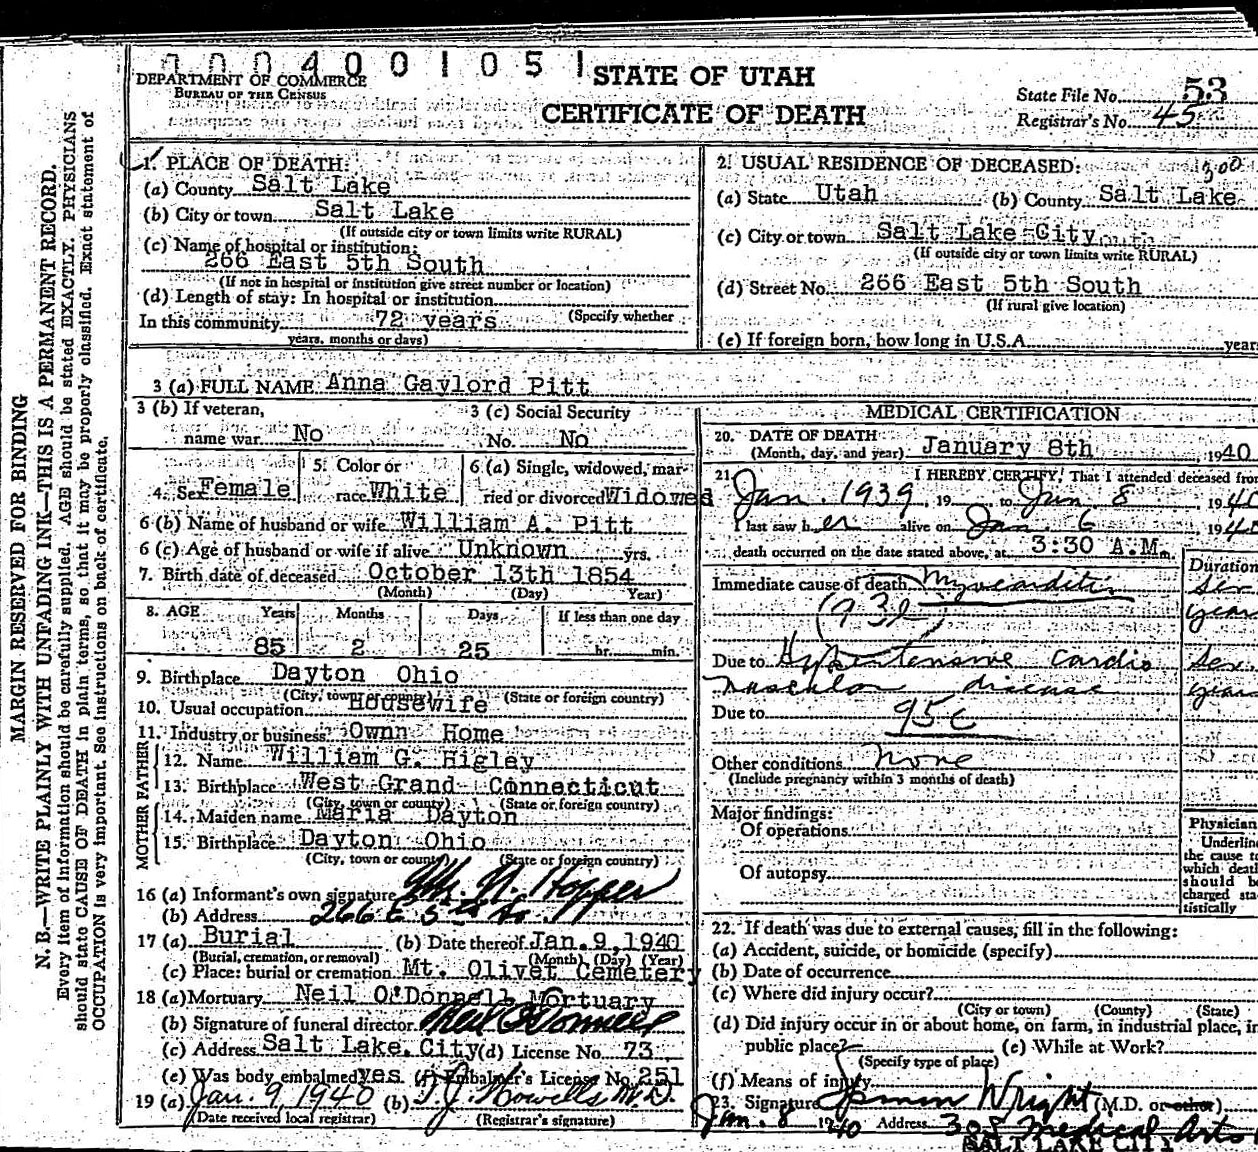 0004001051
DEPARTMENT OF COMMERCE
BUREAU OF THE CENSUS
STATE OF UTAH
CERTIFICATE OF DEATH
State File No. 53
Registrar's No. 45
MARGIN RESERVED FOR BINDING
N. B.—WRITE PLAINLY WITH UNFADING INK—THIS IS A PERMANENT RECORD.
Every item of information should be carefully supplied. AGE should be stated EXACTLY. PHYSICIANS
should state CAUSE OF DEATH in plain terms, so that it may be properly classified. Exact statement of
OCCUPATION is very important. See instructions on back of certificate.
1. PLACE OF DEATH:
(a) County Salt Lake
(b) City or town Salt Lake
(If outside city or town limits write RURAL)
(c) Name of hospital or institution:
266 East 5th South
(If not in hospital or institution give street number or location)
(d) Length of stay: In hospital or institution
(Specify whether
In this community 72 years
years, months or days)
2. USUAL RESIDENCE OF DECEASED: 300
(a) State Utah (b) County Salt Lake
(c) City or town Salt Lake City
(If outside city or town limits write RURAL)
(d) Street No. 266 East 5th South
(If rural give location)
(e) If foreign born, how long in U.S.A. years
3 (a) FULL NAME Anna Gaylord Pitt
3 (b) If veteran, name war No
3 (c) Social Security No. No
4. Sex Female
5. Color or race White
6 (a) Single, widowed, married or divorced Widowed
6 (b) Name of husband or wife William A. Pitt
6 (c) Age of husband or wife if alive Unknown yrs.
7. Birth date of deceased October 13th 1854
(Month) (Day) Year)
8. AGE Years Months Days If less than one day
85 2 25 hr. min.
9. Birthplace Dayton Ohio
(City, town or county) (State or foreign country)
10. Usual occupation Housewife
11. Industry or business Ownn Home
FATHER
12. Name William G. Higley
13. Birthplace West Grand Connecticut
(City, town or county) (State or foreign country)
MOTHER
14. Maiden name Maria Dayton
15. Birthplace Dayton Ohio
(City, town or county) (State or foreign country)
16 (a) Informant's own signature N. Hopper
(b) Address 266 E 5th So
17 (a) Burial (b) Date thereof Jan. 9, 1940
(Burial, cremation, or removal) (Month) (Day) (Year)
(c) Place: burial or cremation Mt. Olivet Cemetery
18 (a) Mortuary Neil O'Donnell Mortuary
(b) Signature of funeral director Neil O'Donnell
(c) Address Salt Lake City (d) License No. 73
(e) Was body embalmed yes (f) Embalmer's License No. 251
19 (a) Jan. 9, 1940 (b) T. J. Howells M.D.
(Date received local registrar) (Registrar's signature)
MEDICAL CERTIFICATION
20. DATE OF DEATH
(Month, day, and year) January 8th, 1940
21 I HEREBY CERTIFY, That I attended deceased from
Jan. 1939, 19 to Jan 8, 194
I last saw her alive on Jan. 6 194
death occurred on the date stated above, at 3:30 A.M. m.
Duration
Immediate cause of death Myocarditis
(93d)
Due to Hypertensive Cardio
vascular disease
Due to 95c
Other conditions None
(Include pregnancy within 3 months of death)
Major findings:
Of operations
Of autopsy
Physician
Underline
the cause to
which death
should be
charged sta-
tistically
22. If death was due to external causes, fill in the following:
(a) Accident, suicide, or homicide (specify)
(b) Date of occurrence
(c) Where did injury occur?
(City or town) (County) (State)
(d) Did injury occur in or about home, on farm, in industrial place, in
public place? (e) While at Work?
(Specify type of place)
(f) Means of injury
23. Signature Wright (M.D. or other)
Jan. 8 1940 Address 305 Medical Arts
SALT LAKE CITY